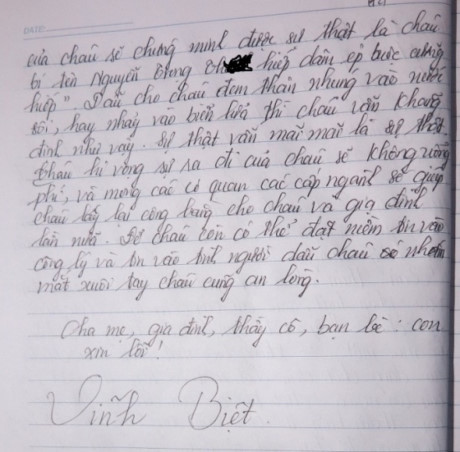 của cháu sẽ chứng minh được sự thật là cháu
bị tên Nguyễn hiếp dâm ép bức cưỡng
hiếp". Dẫu cho cháu đem thân nhúng vào nước
sôi, hay nhảy vào biển lửa thì cháu vẫn khẳng
định như vậy. Sự thật vẫn mãi mãi là sự thật.
Cháu hi vọng sự ra đi của cháu sẽ không uổng
phí, và mong các cơ quan các cấp ngành sẽ giúp
cháu lấy lại công bằng cho cháu và gia đình
lần nữa. Để cháu còn có thể đặt niềm tin vào
công lý và tin vào tình người dẫu cháu có nhắm
mắt xuôi tay cháu cũng an lòng.
Cha mẹ, gia đình, thầy cô, bạn bè: con
xin lỗi!
Vĩnh Biệt.